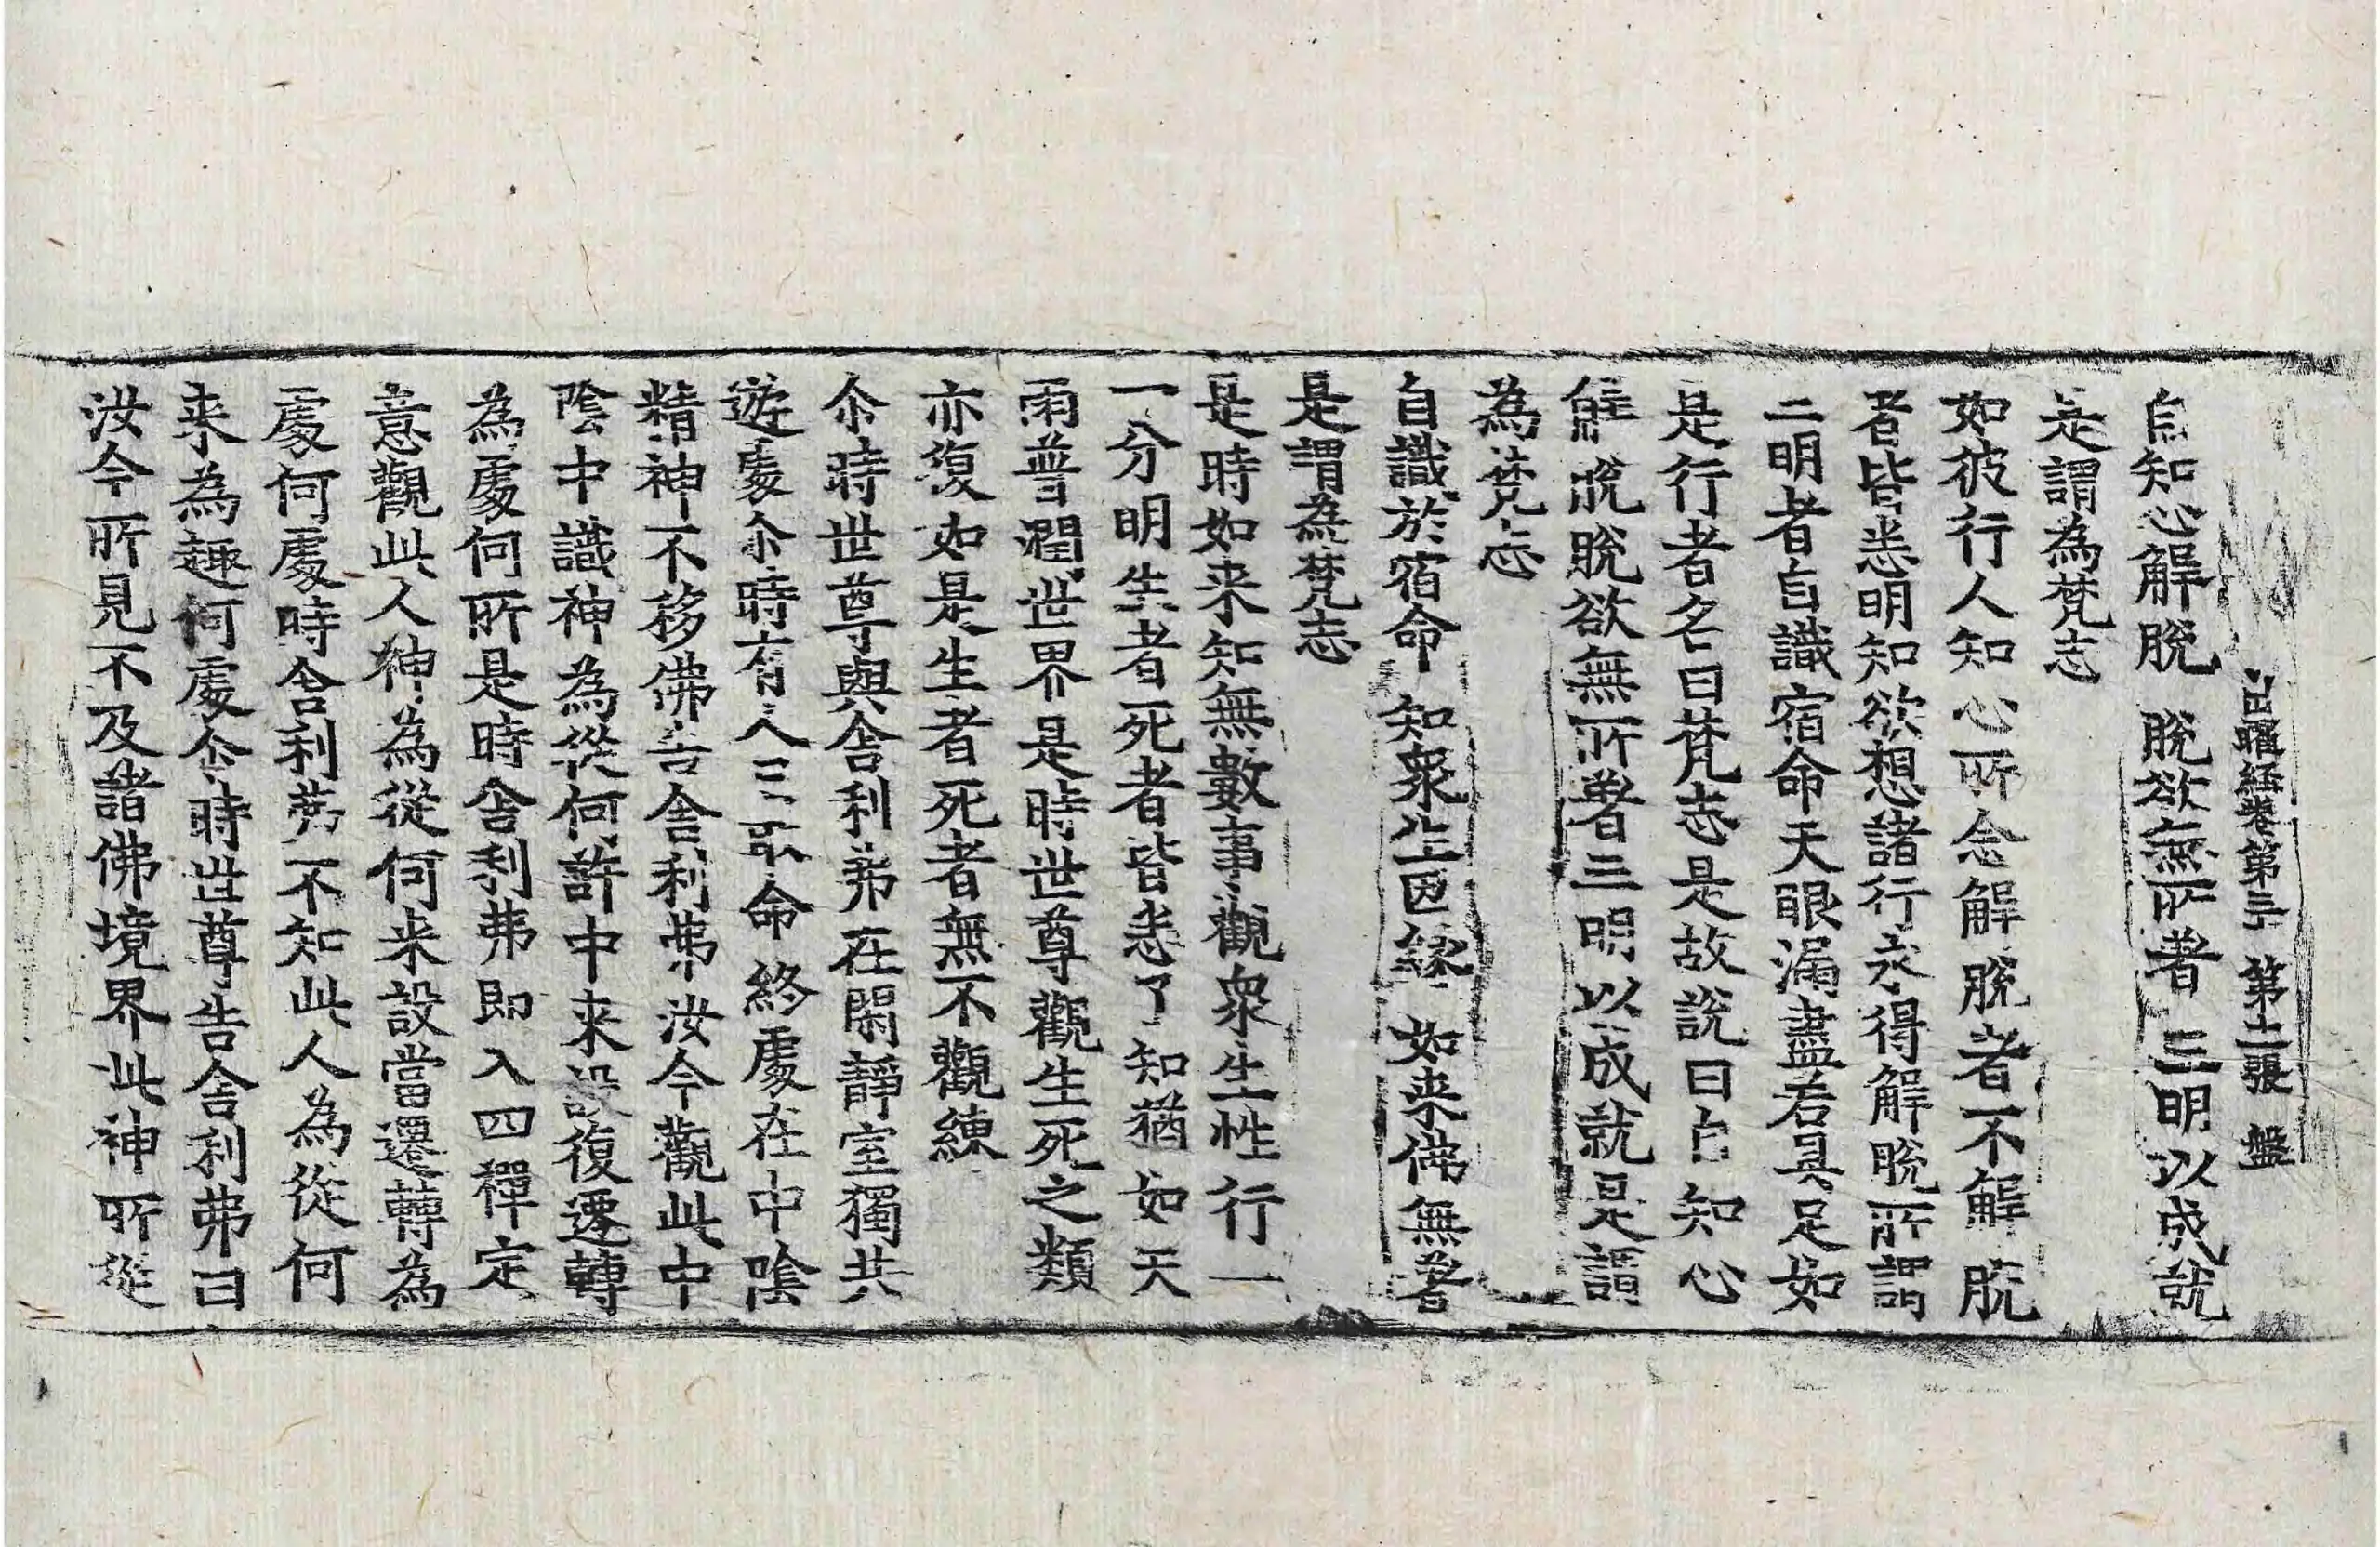 出曜經卷第三十 第十二張 盤
自知心解脫 脫欲無所著 三明以成就
是謂為梵志
如彼行人知心所念解脫者不解脫
者皆悉明知欲想諸行永得解脫所謂
三明者自識宿命天眼漏盡若具足如
是行者名曰梵志是故說曰自知心
解脫脫欲無所著三明以成就是謂
為梵志
自識於宿命 知衆生因緣 如来佛無著
是謂為梵志
是時如来知無數事觀衆生性行一
一分明生者死者皆悉了知猶如天
雨普潤世界是時世尊觀生死之類
亦復如是生者死者無不觀練
尒時世尊與舍利弗在閑靜室獨共
遊處尒時有人三取命終處在中陰
精神不移佛告舍利弗汝今觀此中
陰中識神為從何許中来設復遷轉
為處何所是時舍利弗即入四禪定
意觀此人神為從何来設當遷轉為
處何處時舍利弗不知此人為從何
来為趣何處尒時世尊告舍利弗曰
汝今所見不及諸佛境界此神所從